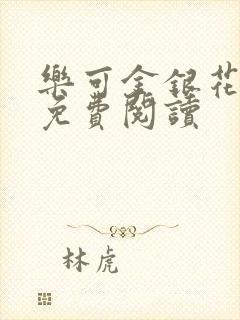 樂可金銀花
免費閱讀
林虎